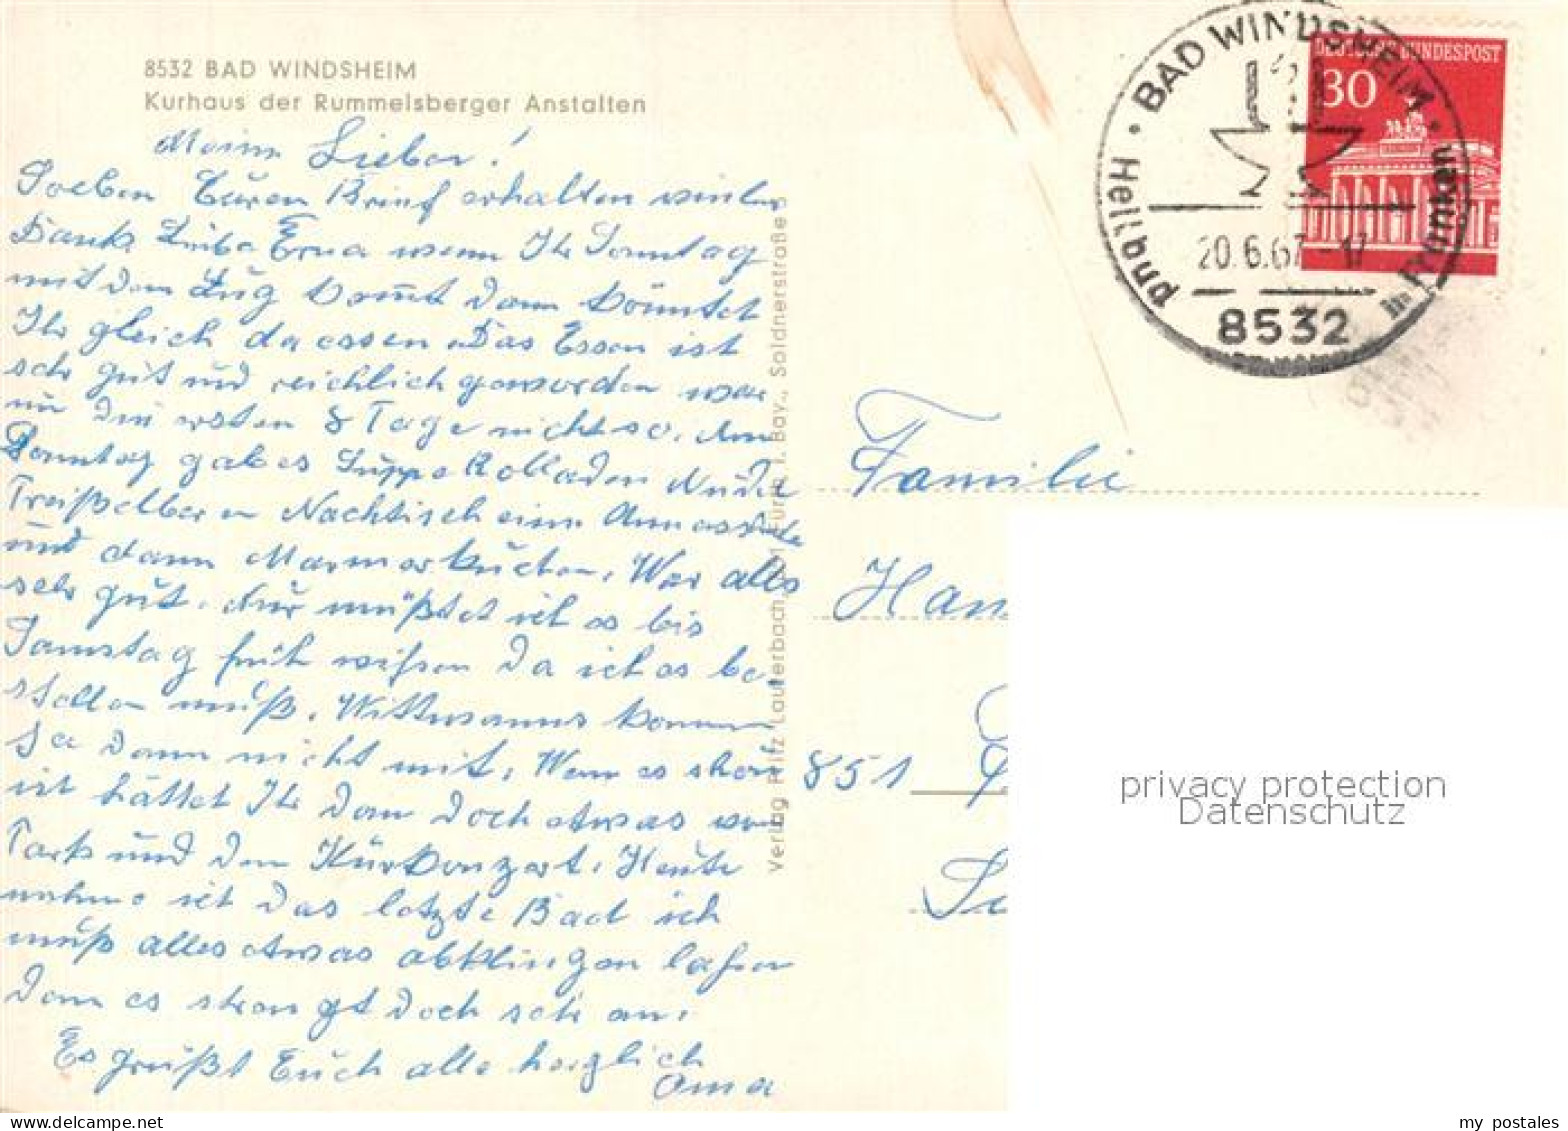 8532 BAD WINDSHEIM
Kurhaus der Rummelsberger Anstalten
Meine Lieben!
Soeben Euren Brief erhalten vielen
Dank. Liebe Erna wenn Ihr Sonntag
mit dem Zug kommt dann könntet
Ihr gleich da essen. Das Essen ist
sehr gut und reichlich geworden war
nur die ersten 8 Tage nicht so. Am
Sonntag gab es Suppe Rolladen Nudel
Preißelbeeren Nachtisch eine
und dann Marmorkuchen. War alles
sehr gut. Nur müßtet ich es bis
Samstag früh wißen da ich es be-
stellen muß. Wittmanns kommen
ja dann nicht mit. Wenn es schön
ist hättet Ihr dann doch etwas vom
Park und dem Kurkonzert. Heute
nehme ich das letzte Bad ich
muß alles etwas abklingen laßen
denn es strengt doch sehr an.
Es grüßt Euch alle herzlich
Oma
Verlag Fritz Lauterbach, Fürth i. Bay., Soldnerstraße
BAD WINDSHEIM
Heilbad
in Franken
20.6.67-17
8532
DEUTSCHE BUNDESPOST
30
Familie
851
privacy protection
Datenschutz
my postales